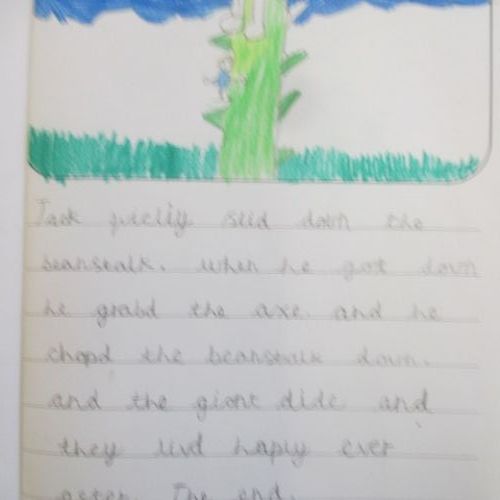 Jack quielly slid down the
beanstalk. when he got down
he grabd the axe. and he
chopd the beanstalk down.
and the giant dide and
they livd haply ever
after. The end.